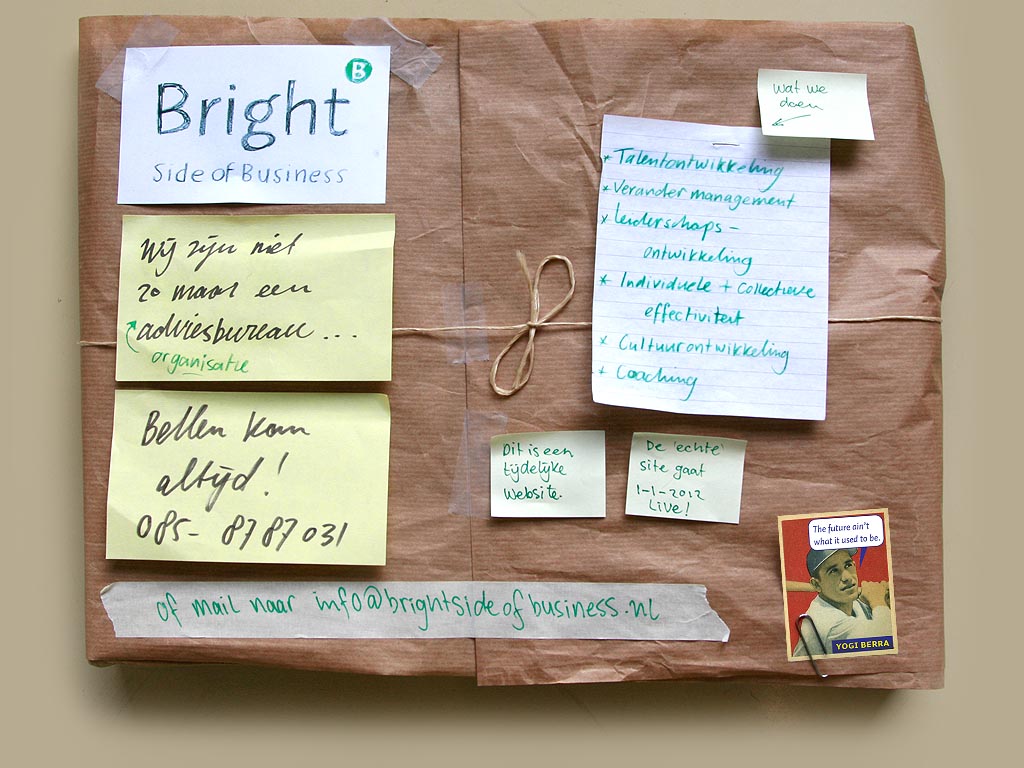 B
Bright
Side of Business
Wij zijn niet
zo maar een
adviesbureau ...
organisatie
Bellen kan
altijd!
085- 8787031
of mail naar info@brightsideofbusiness.nl
wat we
doen
* Talentontwikkeling
* Verandermanagement
* Leiderschaps-
ontwikkeling
* Individuele + Collectieve
effectiviteit
* Cultuurontwikkeling
* Coaching
Dit is een
tijdelijke
website.
De 'echte'
site gaat
1-1-2012
Live!
The future ain't
what it used to be.
YOGI BERRA